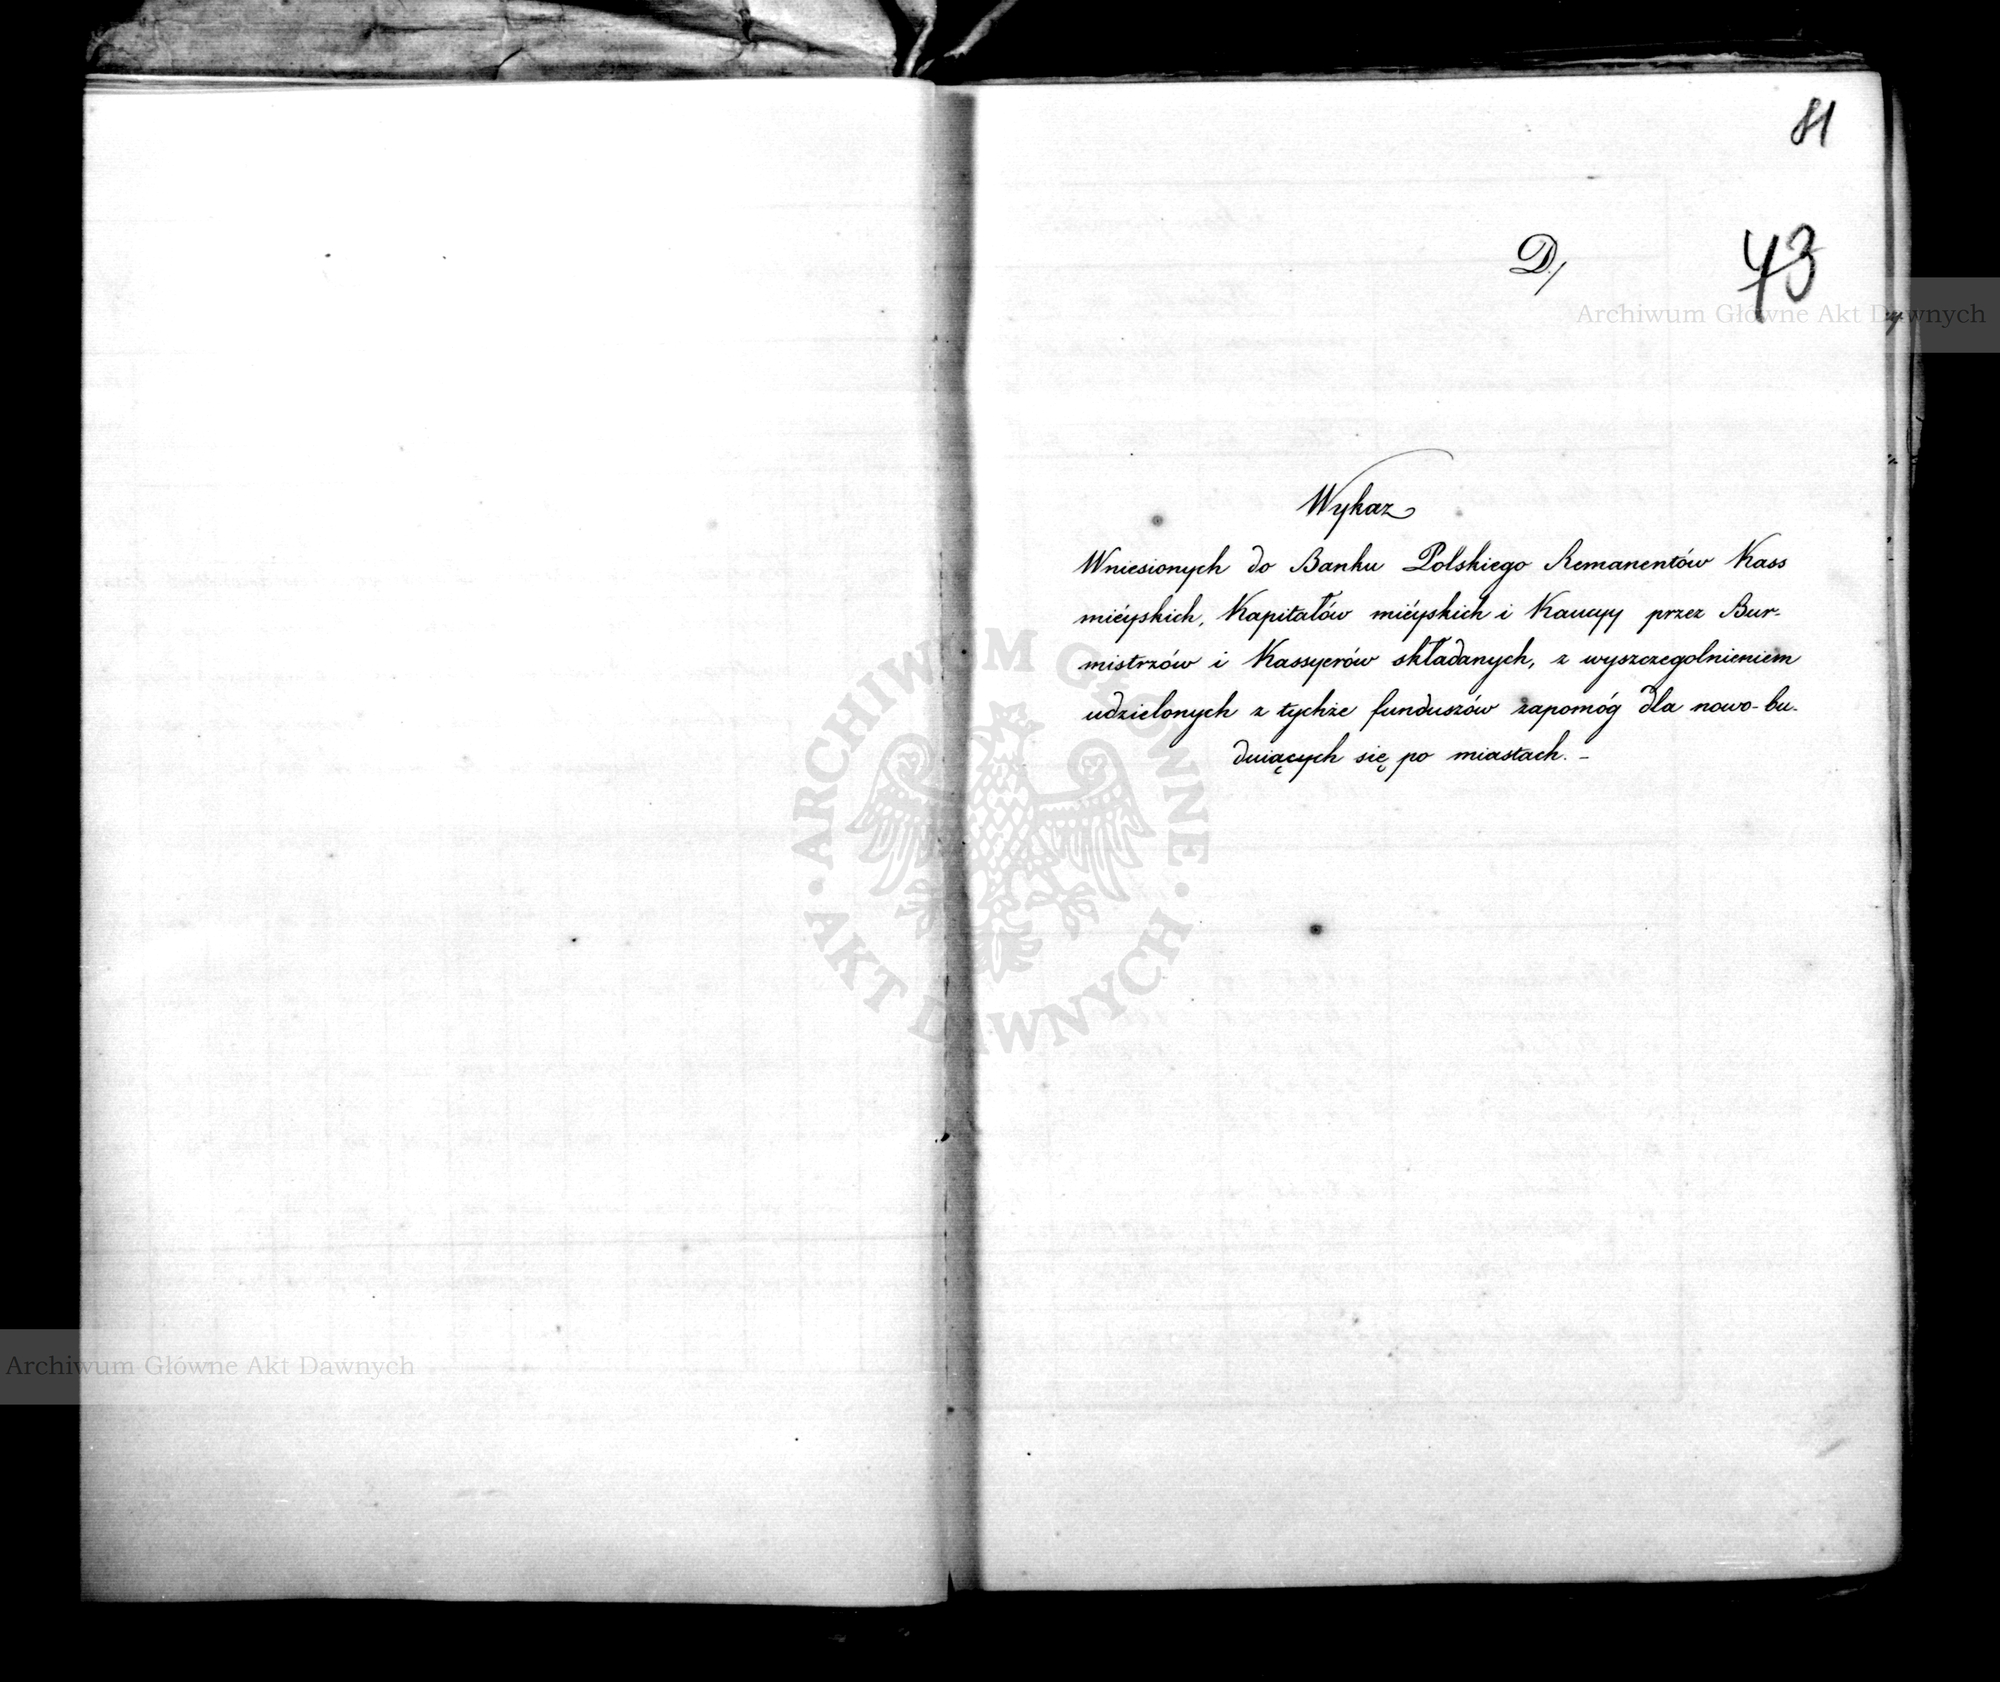 81
D./
43
Archiwum Główne Akt Dawnych
Wykaz
Wniesionych do Banku Polskiego Remanentów Kass
mieyskich, Kapitałów mieyskich i Kaucyy przez Bur-
mistrzów i Kassyerów składanych, z wyszczegolnieniem
udzielonych z tychże funduszów zapomóg dla nowo-bu-
duiących się po miastach. -
ARCHIWUM GŁÓWNE
AKT DAWNYCH
Archiwum Główne Akt Dawnych